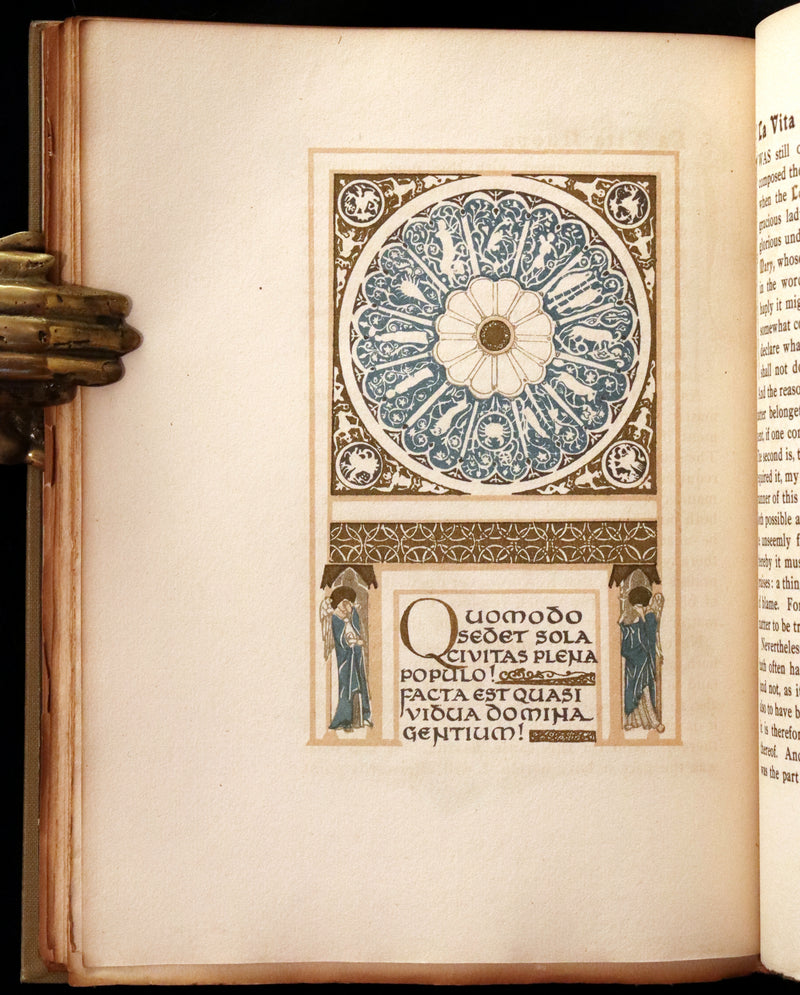 QUOMODO
SEDET SOLA
CIVITAS PLENA
POPULO!
FACTA EST QUASI
VIDUA DOMINA
GENTIUM!
La Vita
WAS still
composed the
when the
gracious lad
glorious und
Mary, whose
in the wor
haply it mig
somewhat
declare wha
shall not
And the reaso
belonget
if one con
second is,
my
of this
possible a
unseemly f
it mus
a thin
of blame. For
to be tr
Nevertheles
often ha
and not, as
to have b
it is therefor
thereof. And
was the part